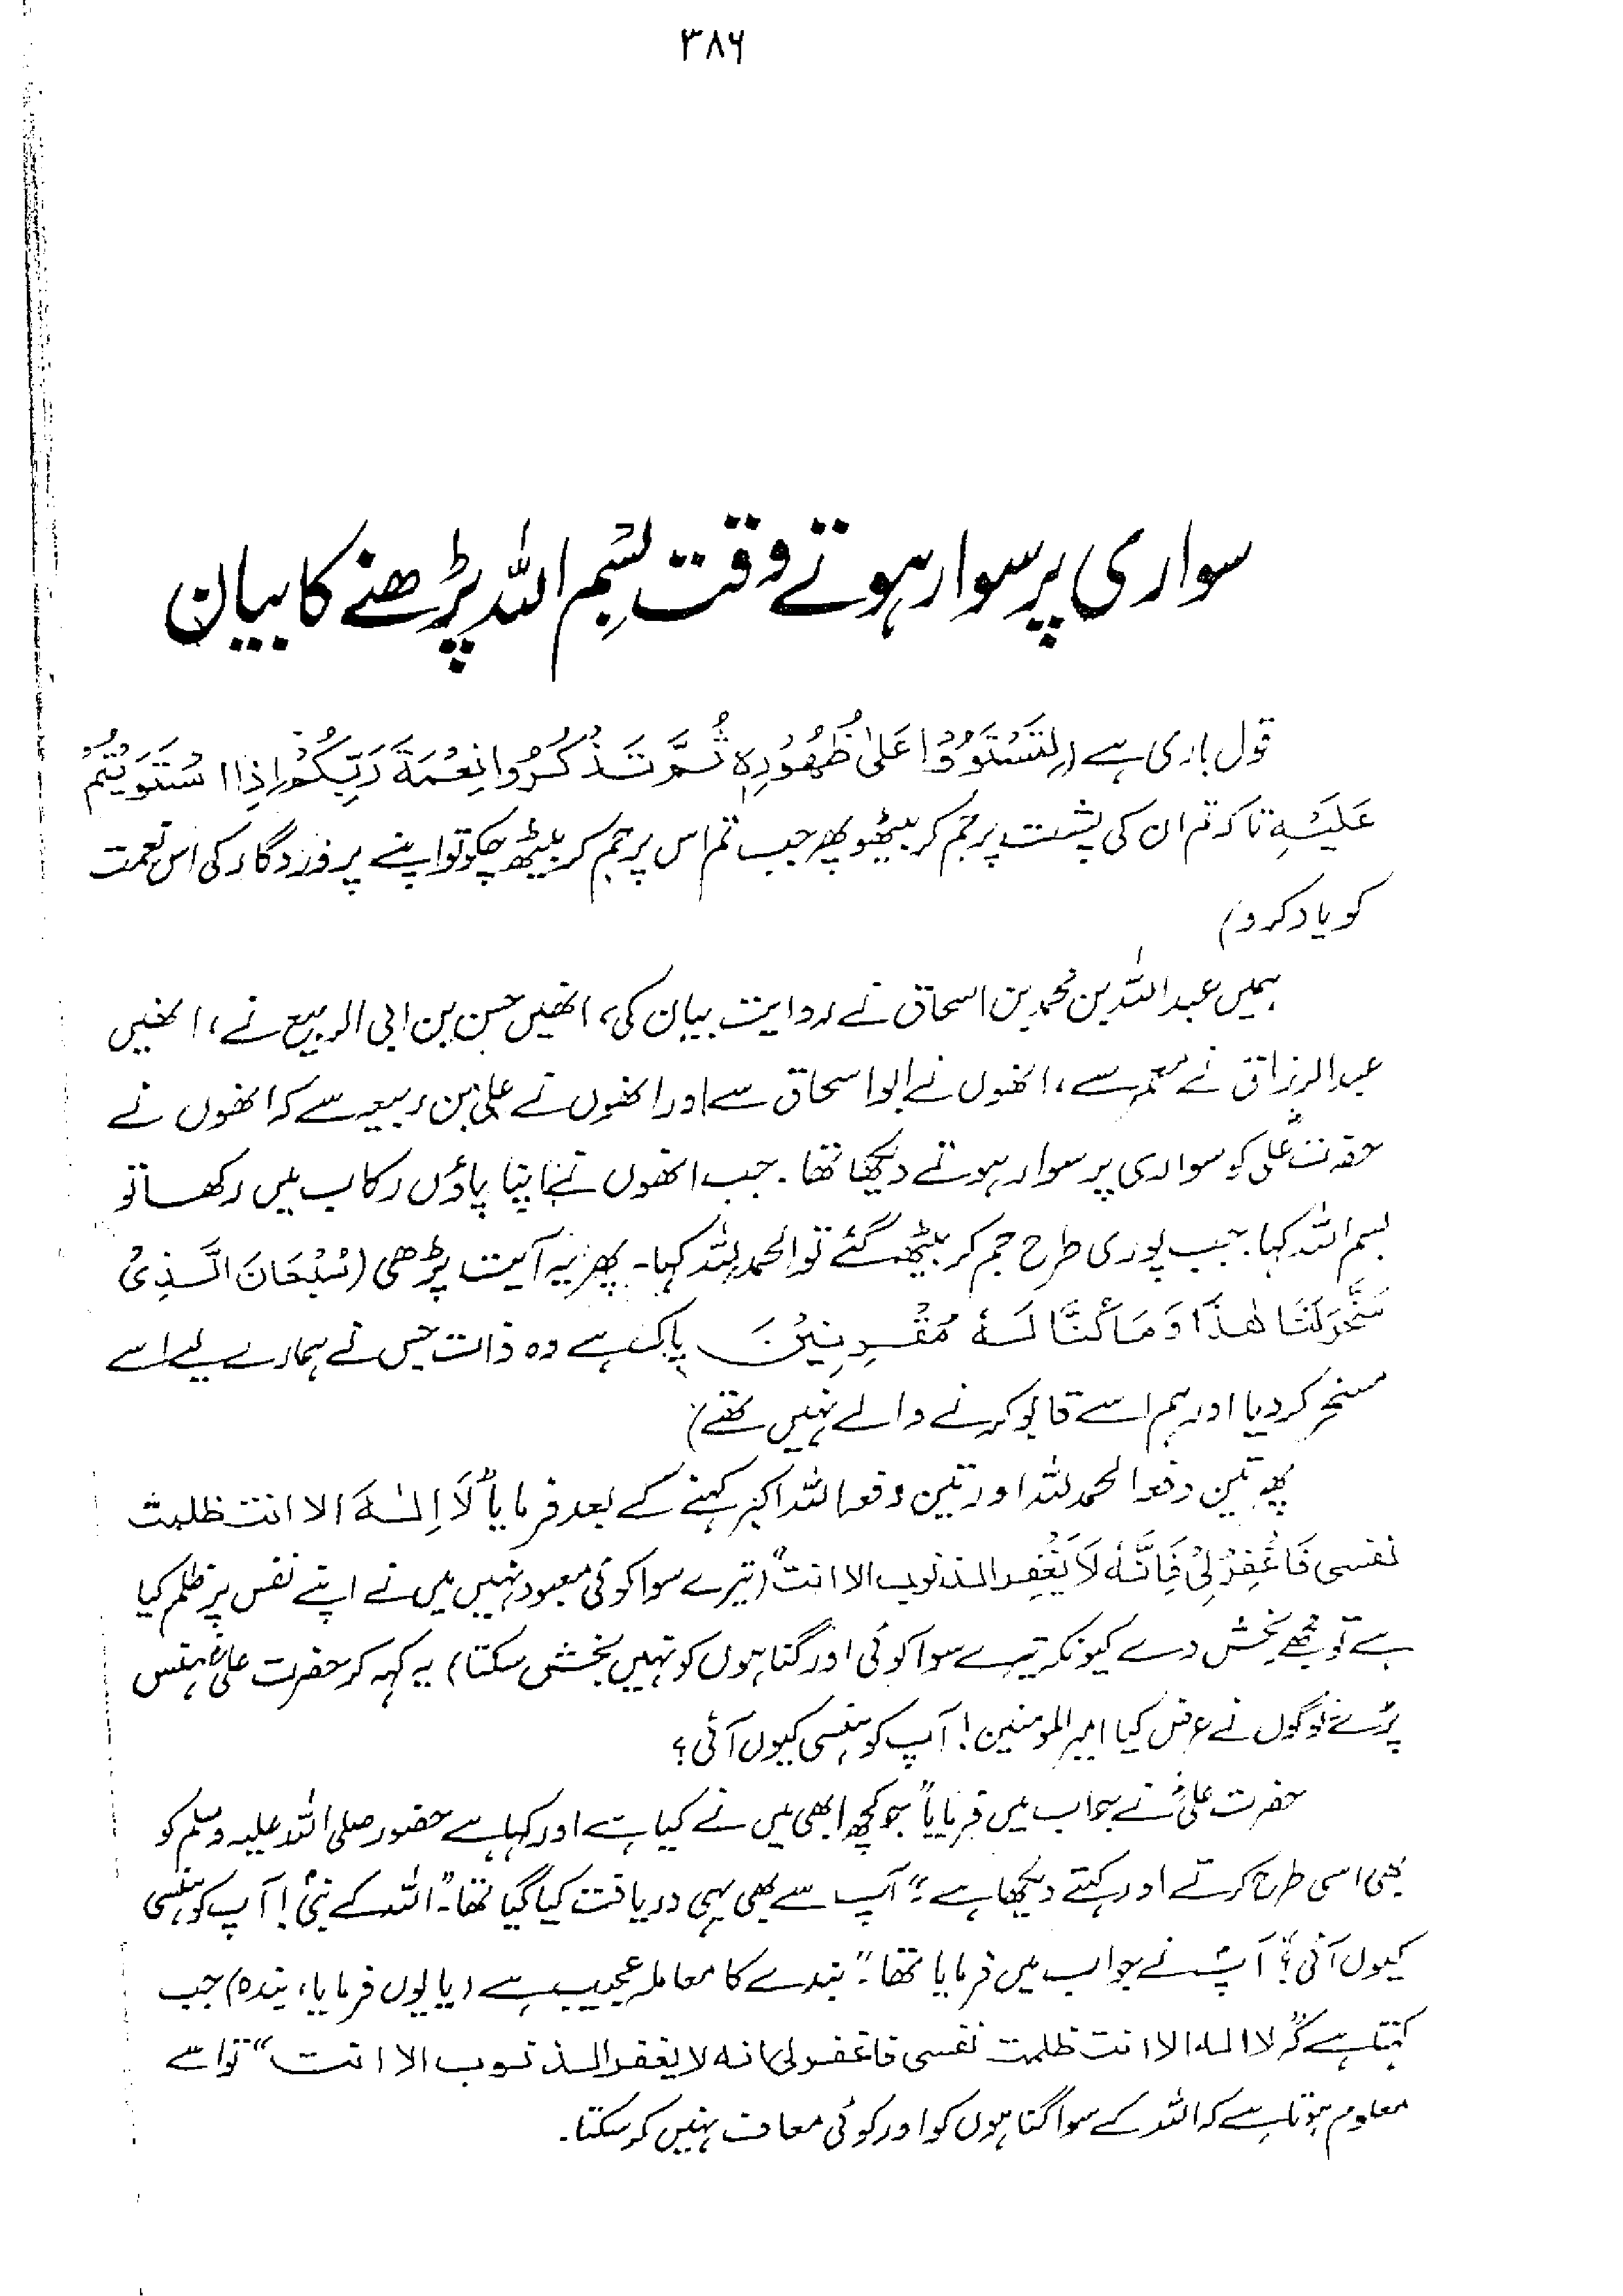 ۳۸۶
سواری پر سوار ہوتے وقت بسم اللہ پڑھنے کا بیان
قول باری ہے (لِتَسْتَوُوْا عَلٰی ظُهُوْرِهٖ ثُمَّ تَذْكُرُوا نِعْمَةَ رَبِّكُمْ اِذَا اسْتَوَيْتُمْ
عَلَيْهِ تاکہ تم ان کی پشت پر جم کر بیٹھو پھر جب تم اس پر جم کر بیٹھ چکو تو اپنے پروردگار کی اس نعمت
کو یاد کرو)
ہمیں عبداللہ بن محمد بن اسحاق نے روایت بیان کی، انھیں حسن بن ابی الربیع نے، انھیں
عبدالرزاق نے معمر سے، انھوں نے ابواسحاق سے اور انھوں نے علی بن ربیعہ سے کہ انھوں نے
حضرت علیؓ کو سواری پر سوار ہوتے دیکھا تھا۔ جب انھوں نے اپنا پاؤں رکاب میں رکھا تو
بسم اللہ کہا۔ جب پوری طرح جم کر بیٹھ گئے تو الحمد للہ کہا۔ پھر یہ آیت پڑھی (سُبْحَانَ الَّذِیْ
سَخَّرَ لَنَا هٰذَا وَمَا كُنَّا لَهٗ مُقْرِنِيْنَ پاک ہے وہ ذات جس نے ہمارے لیے اسے
مسخر کردیا اور ہم اسے قابو کرنے والے نہیں تھے)
پھر تین دفعہ الحمد للہ اور تین دفعہ اللہ اکبر کہنے کے بعد فرمایا "لَا اِلٰهَ الا انت ظلمت
نفسی فَاغْفِرْلِیْ فَاِنَّهٗ لَا يَغْفِر الذنوب الا انت" (تیرے سوا کوئی معبود نہیں میں نے اپنے نفس پر ظلم کیا
ہے تو مجھے بخش دے کیونکہ تیرے سوا کوئی اور گناہوں کو نہیں بخش سکتا) یہ کہہ کر حضرت علیؓ ہنس
پڑے لوگوں نے عرض کیا امیر المومنین! آپ کو ہنسی کیوں آئی؟
حضرت علیؓ نے جواب میں فرمایا "جو کچھ ابھی میں نے کیا ہے اور کہا ہے حضور صلی اللہ علیہ وسلم کو
بھی اسی طرح کرتے اور کہتے دیکھا ہے؛" آپ سے بھی یہی دریافت کیا گیا تھا۔ "اللہ کے نبیؐ! آپ کو ہنسی
کیوں آئی؟" آپؐ نے جواب میں فرمایا تھا۔ "بندے کا معاملہ عجیب ہے (یا یوں فرمایا، بندہ) جب
کہتا ہے "لا الہ الا انت ظلمت نفسی فاغفرلی انہ لا یغفر الذنوب الا انت" تو اسے
معلوم ہوتا ہے کہ اللہ کے سوا گناہوں کو اور کوئی معاف نہیں کرسکتا۔